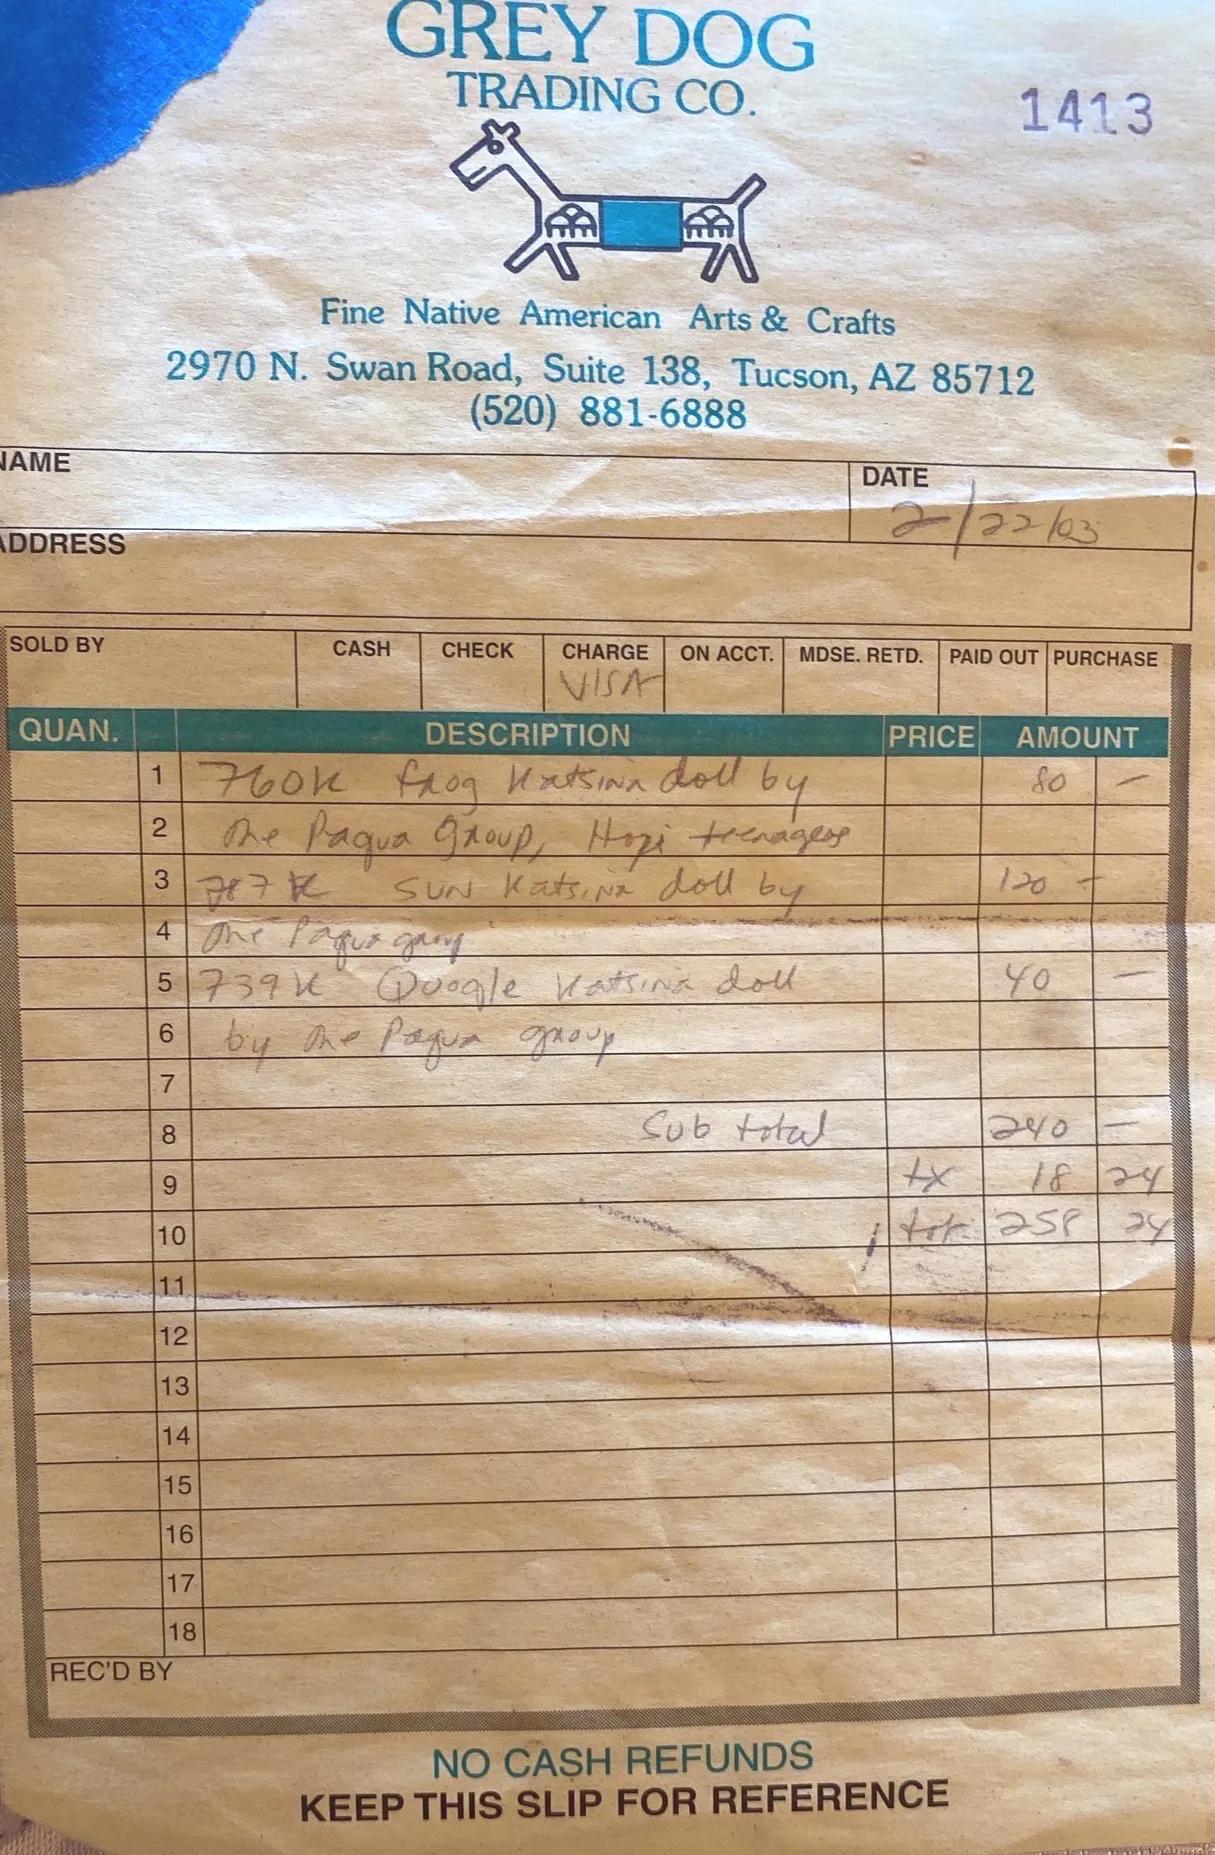 GREY DOG
TRADING CO.
1413
Fine Native American Arts & Crafts
2970 N. Swan Road, Suite 138, Tucson, AZ 85712
(520) 881-6888
NAME
DATE
2/22/03
ADDRESS
SOLD BY CASH CHECK CHARGE ON ACCT. MDSE. RETD. PAID OUT PURCHASE
VISA
QUAN. DESCRIPTION PRICE AMOUNT
1 760K frog Katsina doll by 80 —
2 the Paqua Group, Hopi teenagers
3 787K SUN Katsina doll by 120 —
4 the Paqua group
5 739K Katsina doll 40 —
6 by the Paqua group
7
8 Sub total 240 —
9 tx 18 24
10 tot 258 24
11
12
13
14
15
16
17
18
REC'D BY
NO CASH REFUNDS
KEEP THIS SLIP FOR REFERENCE